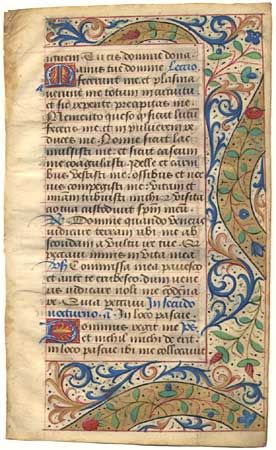 quiem Tu eis domine dona
Manus tue domine Lectio
fecerunt me et plasma
verunt me totum in circuitu
et sic repente precipitas me
Memento queso quod sicut lutu
feceris me et in pulverem re
duces me Nonne sicut lac
mulsisti me et sicut caseum
me coagulasti Pelle et carni
bus vestisti me ossibus et ner
vis compegisti me Vitam et
miam tribuisti michi et visita
tio tua custodivit spm meu
Domine quando veneris
iudicare terram ubi me ab
scondam a vultu ire tue
peccavi nimis in vita mea
Commissa mea pavesco
et ante te erubesco dum vene
ris iudicare noli me condena
re Quia peccavi In secundo
nocturno a In loco pascue
Dominus regit me ps
et nichil michi deerit
in loco pascue ibi me collocavit